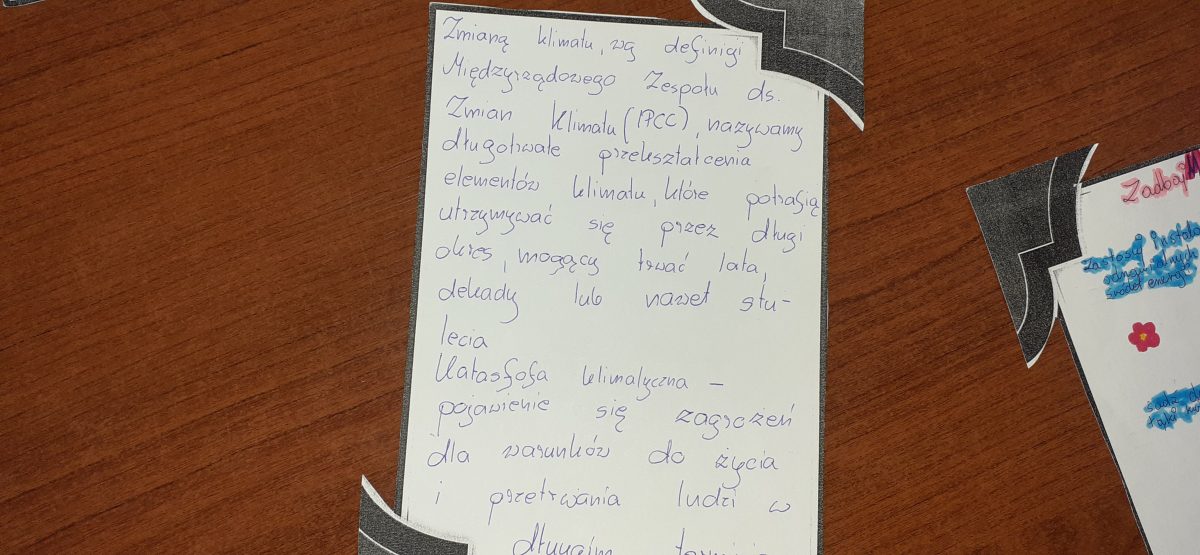 Zmianą klimatu, wg definicji
Międzyrządowego Zespołu ds.
Zmian Klimatu (IPCC), nazywamy
długotrwałe przekształcenia
elementów klimatu, które potrafią
utrzymywać się przez długi
okres, mogący trwać lata,
dekady lub nawet stu-
lecia
Katasfofa klimatyczna -
pojawienie się zagrożeń
dla warunków do życia
i przetrwania ludzi w
długim
Zadbaj
Zastosuj
energii